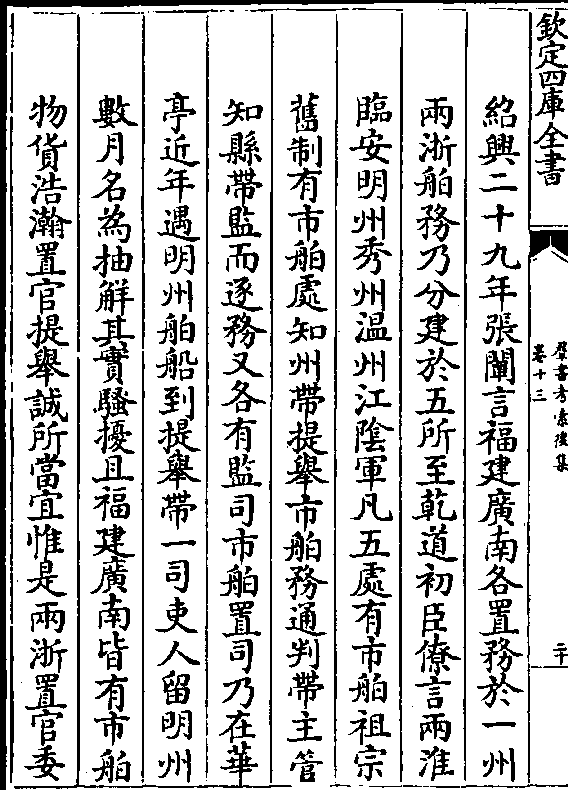 欽定四庫全書
羣書考索後集
卷十三
二十
紹興二十九年張闡言福建廣南各置務於一州
兩浙舶務乃分建於五所至乾道初臣僚言兩淮
臨安明州秀州温州江隂軍凡五處有市舶祖宗
舊制有市舶處知州帶提舉市舶務通判帶主管
知縣帶監而逐務又各有監司市舶置司乃在華
亭近年遇明州舶船到提舉帶一司吏人留明州
數月名為抽解其實騷擾且福建廣南皆有市舶
物貨浩瀚置官提舉誠所當宜惟是兩浙置官委